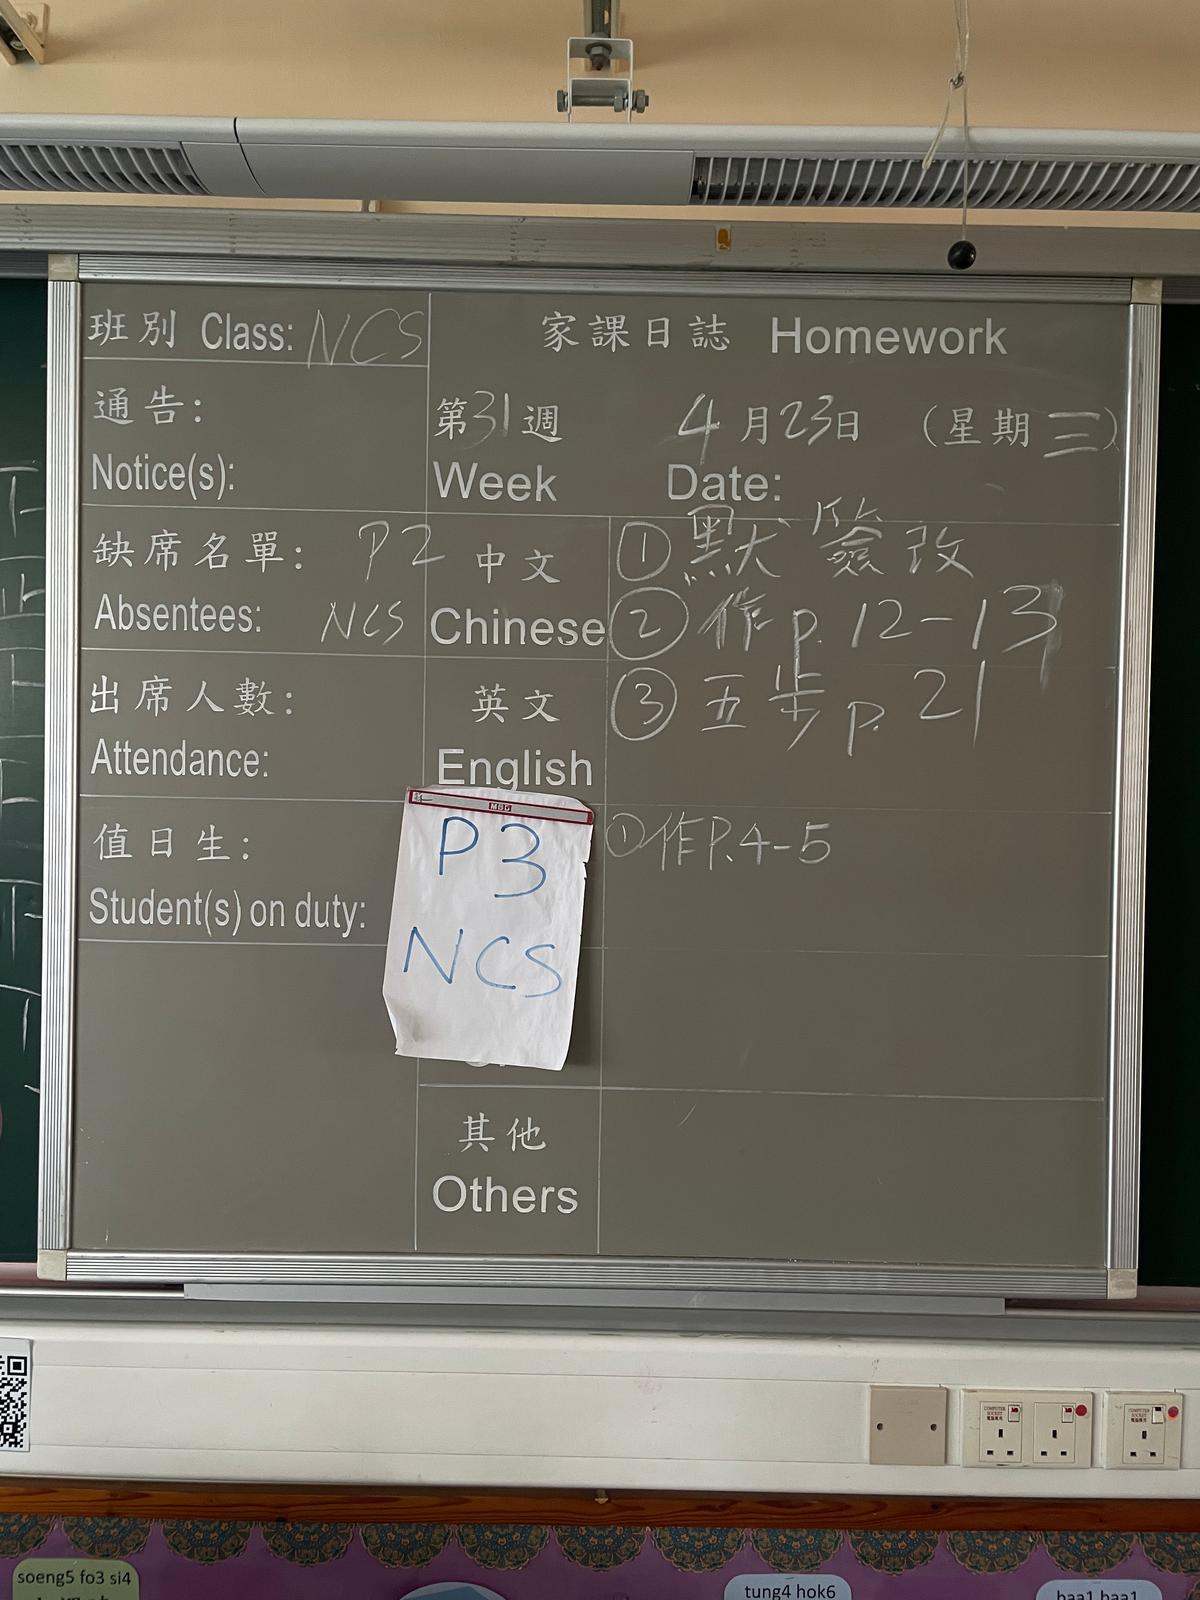 班別 Class: NCS
家課日誌 Homework
通告:
Notice(s):
第31週 4月23日 (星期三)
Week Date:
缺席名單: P2
Absentees: NCS
中文
Chinese
① 默 簽 改
② 作 p. 12-13
③ 五步 p. 21
出席人數:
Attendance:
英文
English
值日生:
Student(s) on duty:
MBG
P3
NCS
① 作 P.4-5
其他
Others
COMPUTER SOCKET
COMPUTER SOCKET
soeng5 fo3 si4
tung4 hok6
baa1 baa1